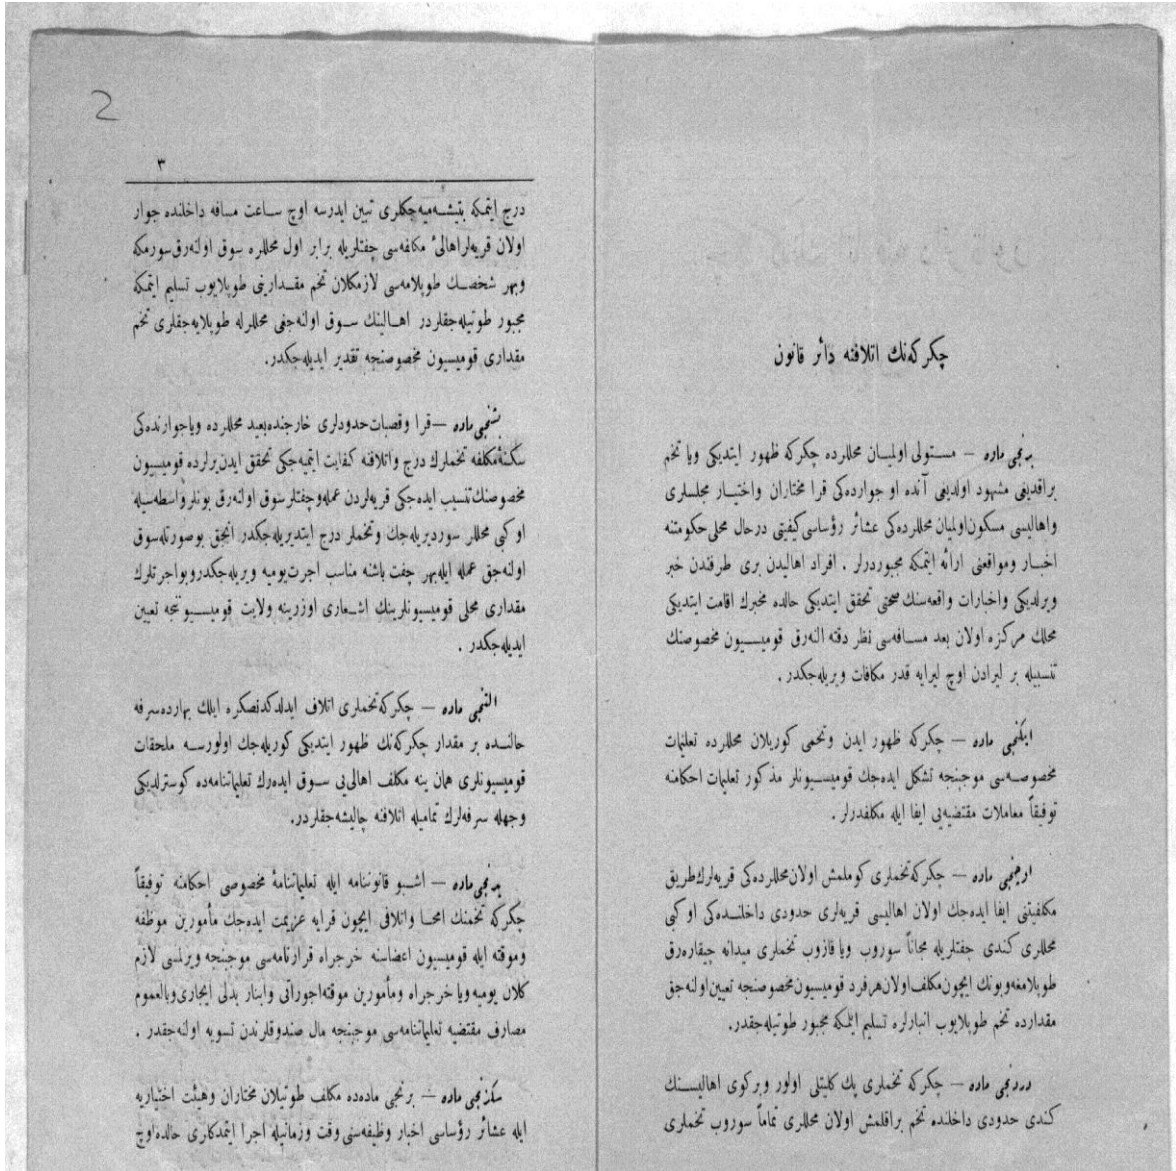 چكركه‌نك اتلافنه دائر قانون
برنجی ماده — مستولی اولمیان محللرده چكركه ظهور ایتدیكی ویا تخم
براقدیغی مشهود اولدیغی آنده او جوارده‌كی قرا مختاران واختیار مجلسلری
واهالیسی مسكون اولمیان محللرده‌كی عشائر رؤساسی كیفیتی درحال محلی حكومتنه
اخبار ومواقعنی ارائه ایتمكه مجبوردرلر . افراد اهالیدن بری طرفندن خبر
ویرلدیكی واخبارات واقعه‌سنك صحتی تحقق ایتدیكی حالده مخبرك اقامت ایتدیكی
محلك مركزه اولان بعد مسافه‌سی نظر دقته النه‌رق قومیسیون مخصوصنك
تنسیبیله بر لیرادن اوچ لیرایه قدر مكافات ویریله‌جكدر .
ایكنجی ماده — چكركه ظهور ایدن وتخمی كوریلان محللرده تعلیمات
مخصوصه‌سی موجبنجه تشكل ایده‌جك قومیسیونلر مذكور تعلیمات احكامنه
توفیقاً معاملات مقتضیه‌یی ایفا ایله مكلفدرلر .
اوچنجی ماده — چكركه تخملری كوملمش اولان محللرده‌كی قریه‌لرك طریق
مكلفیتنی ایفا ایده‌جك اولان اهالیسی قریه‌لری حدودی داخلنده‌كی او كبی
محللری كندی جفتلریله مجاناً سوروب ویا قازوب تخملری میدانه چیقاره‌رق
طوپلامغه وبونك ایچون مكلف اولان هر فرد قومیسیون مخصوصنجه تعیین اولنه‌جق
مقدارده تخم طوپلایوب انبارلره تسلیم ایلمكه مجبور طوتیله‌جقدر.
دردنجی ماده — چكركه تخملری پك كلیتلی اولور وبركوی اهالیسنك
كندی حدودی داخلنده تخم براقلمش اولان محللری تماماً سوروب تخملری
2
٣
درج ایتمكه یتیشه‌میه‌جكلری تبین ایدرسه اوچ ساعت مسافه داخلنده جوار
اولان قریه‌لر اهالئ مكلفه‌سی چفتلریله برابر اول محللره سوق اولنه‌رق سورمكه
وبهر شخصك طوپلامه‌سی لازمكلان تخم مقدارینی طوپلایوب تسلیم ایتمكه
مجبور طوتیله‌جقلردر اهالینك سوق اولنه‌جغی محللرله طوپلایه‌جقلری تخم
مقداری قومیسیون مخصوصنجه تقدیر ایدیله‌جكدر.
بشنجی ماده — قرا وقصبات حدودلری خارجنده بعید محللرده ویا جوارنده‌كی
سكنۀ مكلفه تخملرك درج واتلافنه كفایت ایتمیه‌جكی تحقق ایدن یرلرده قومیسیون
مخصوصنك تنسیب ایده‌جكی قریه‌لردن عمله وچفتلر سوق اولنه‌رق بونلر واسطه‌سیله
او كبی محللر سوردیریله‌جك وتخملر درج ایتدیریله‌جكدر. انجق بوصورتله سوق
اولنه‌جق عمله ایله بهر چفت باشنه مناسب اجرت یومیه ویریله‌جكدر وبو اجرتلرك
مقداری محلی قومیسیونلرینك اشعاری اوزرینه ولایت قومیسیونجه تعیین
ایدیله‌جكدر .
التنجی ماده — چكركه تخملری اتلاف ایدلدكدنصكره ایلك بهارده سرفه
حالنده بر مقدار چكركه‌نك ظهور ایتدیكی كوریله‌جك اولورسه ملحقات
قومیسیونلری همان ینه مكلف اهالی‌یی سوق ایده‌رك تعلیماتنامه‌ده كوسترلدیكی
وجهله سرفه‌لرك تمامیله اتلافنه چالیشه‌جقلردر.
یدنجی ماده — اشبو قانوننامه ایله تعلیماتنامۀ مخصوصی احكامنه توفیقاً
چكركه تخمنك امحا واتلافی ایچون قرایه عزیمت ایده‌جك مأمورین موظفه
وموقته ایله قومیسیون اعضاسنه خرجراه قرارنامه‌سی موجبنجه ویرلمسی لازم
كلان یومیه ویا خرجراه ومأمورین موقته اجوراتی وانبار بدلی ایجاری وبالعموم
مصارف مقتضیه تعلیماتنامه‌سی موجبنجه مال صندوقلرندن تسویه اولنه‌جقدر .
سكزنجی ماده — برنجی ماده‌ده مكلف طوتیلان مختاران وهیئت اختیاریه
ایله عشائر رؤساسی اخبار وظیفه‌سنی وقت وزمانیله اجرا ایتمدكلری حالده اوچ